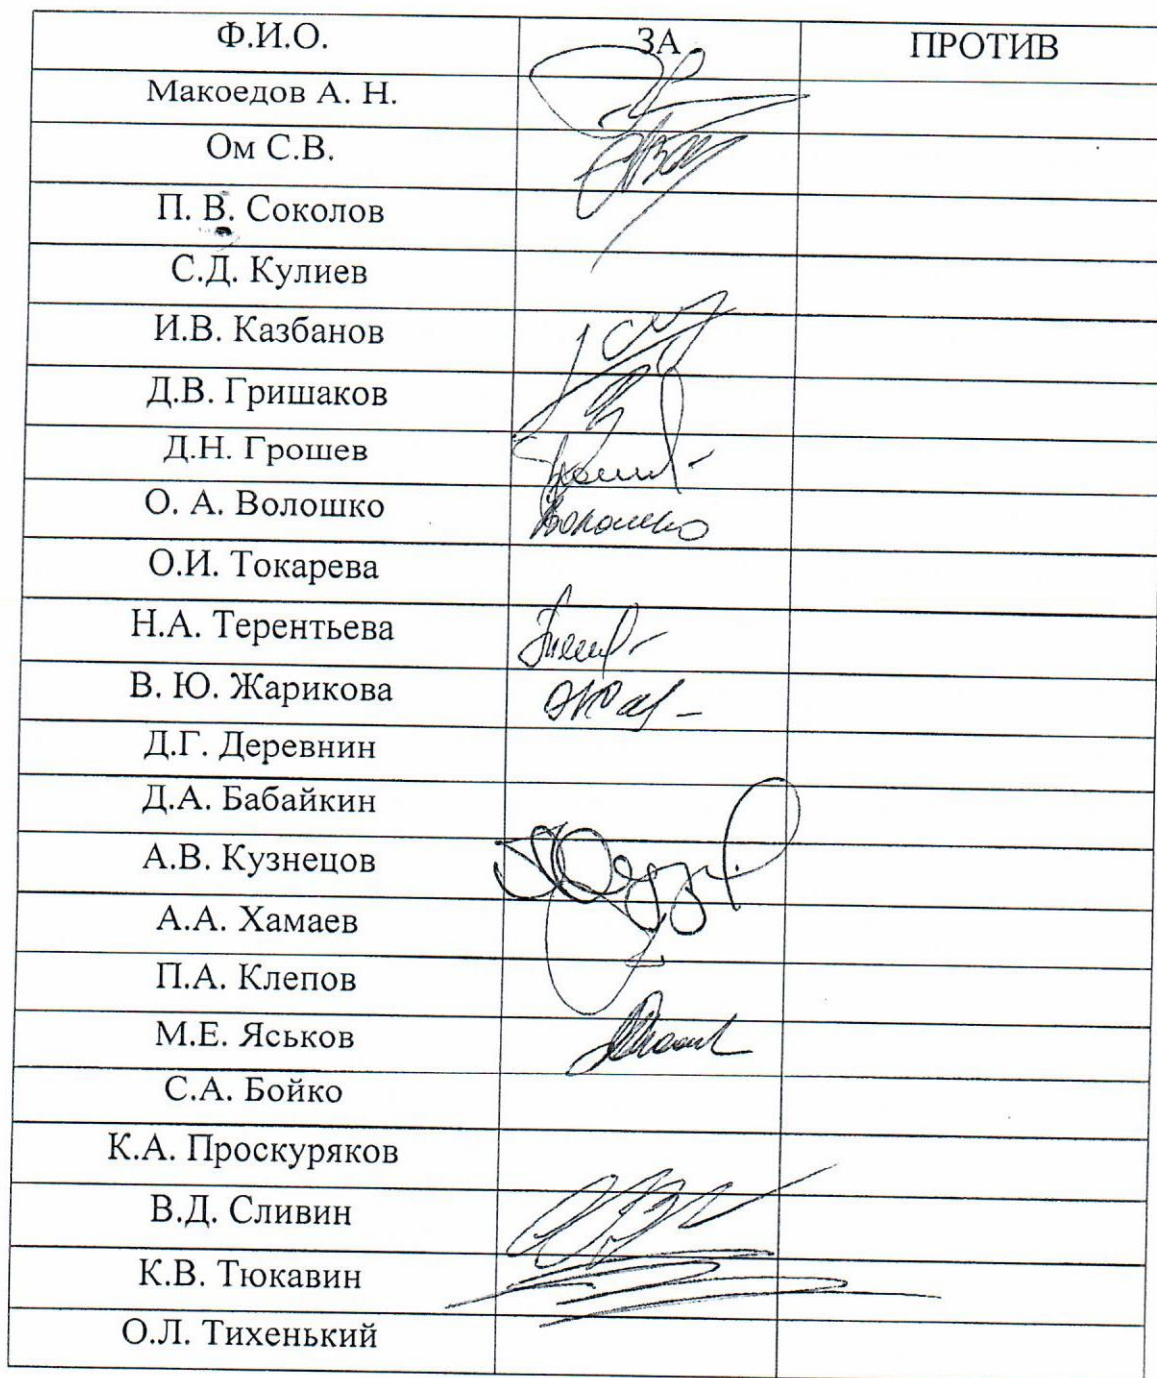 Ф.И.О. ЗА ПРОТИВ
Макоедов А. Н.
Ом С.В.
П. В. Соколов
С.Д. Кулиев
И.В. Казбанов
Д.В. Гришаков
Д.Н. Грошев
О. А. Волошко
О.И. Токарева
Н.А. Терентьева
В. Ю. Жарикова
Д.Г. Деревнин
Д.А. Бабайкин
А.В. Кузнецов
А.А. Хамаев
П.А. Клепов
М.Е. Яськов
С.А. Бойко
К.А. Проскуряков
В.Д. Сливин
К.В. Тюкавин
О.Л. Тихенький